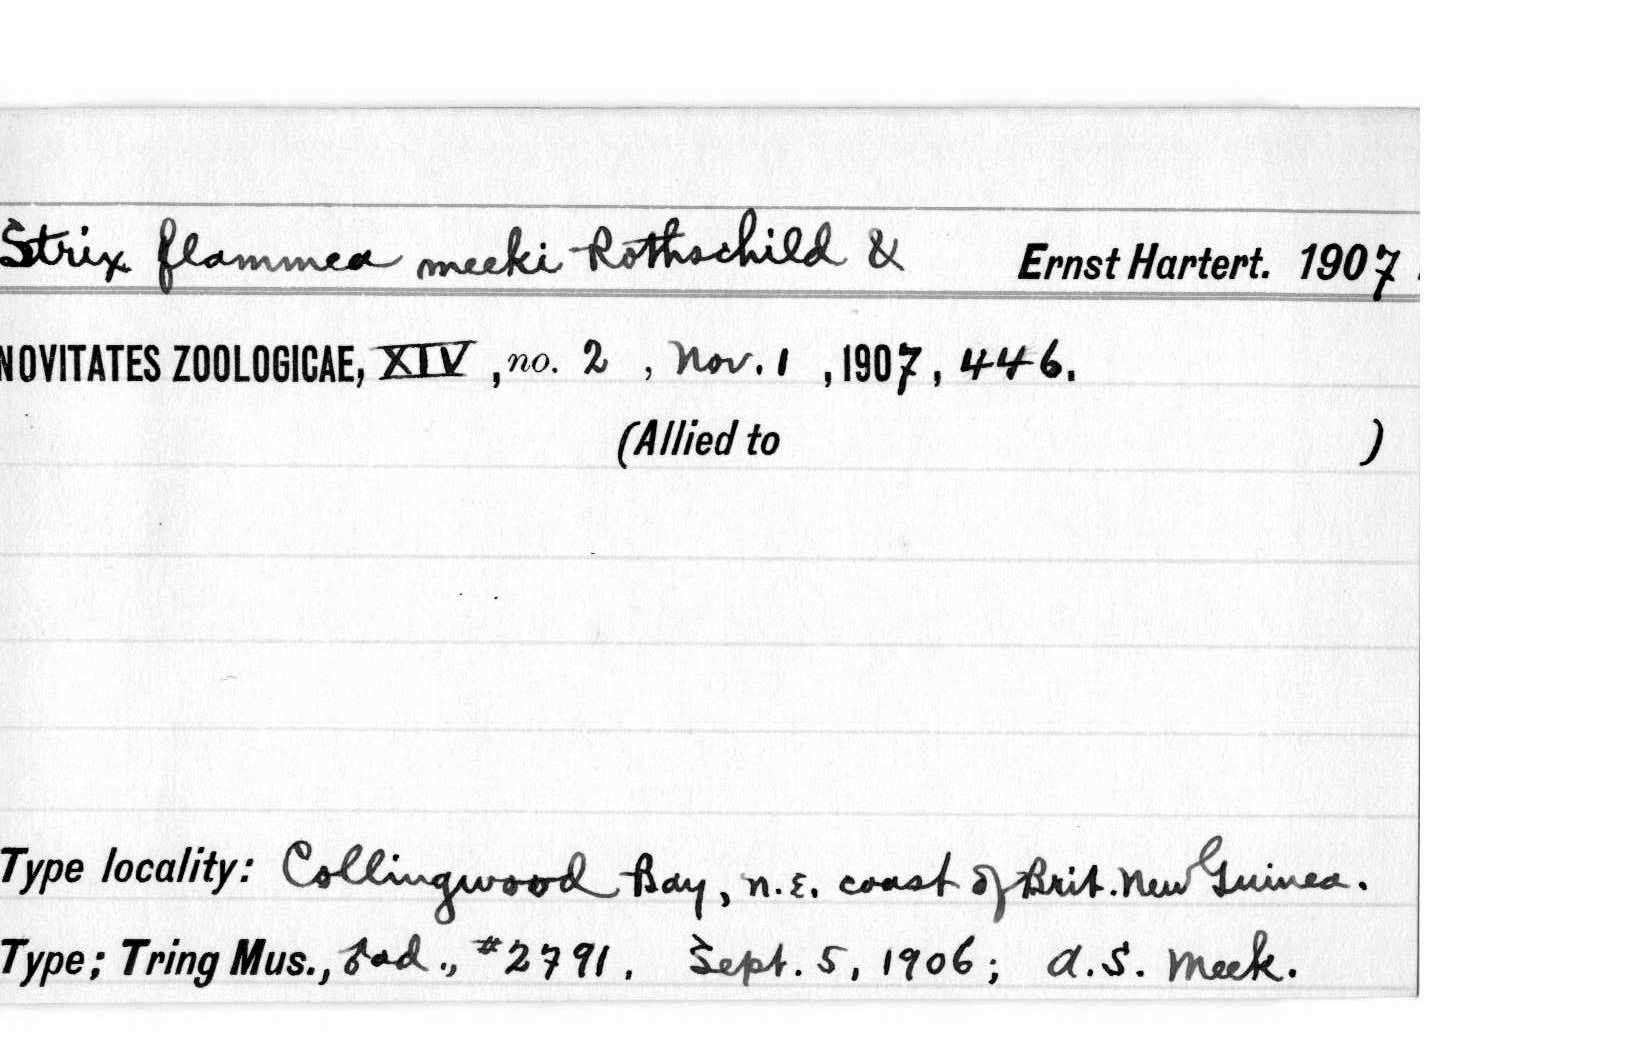 Strix flammea meeki Rothschild & Ernst Hartert. 1907.
NOVITATES ZOOLOGICAE, XIV, no. 2, Nov. 1, 1907, 446.
(Allied to )
Type locality: Collingwood Bay, n.E. coast of Brit. New Guinea.
Type; Tring Mus., ad., #2791. Sept. 5, 1906; A.S. Meek.